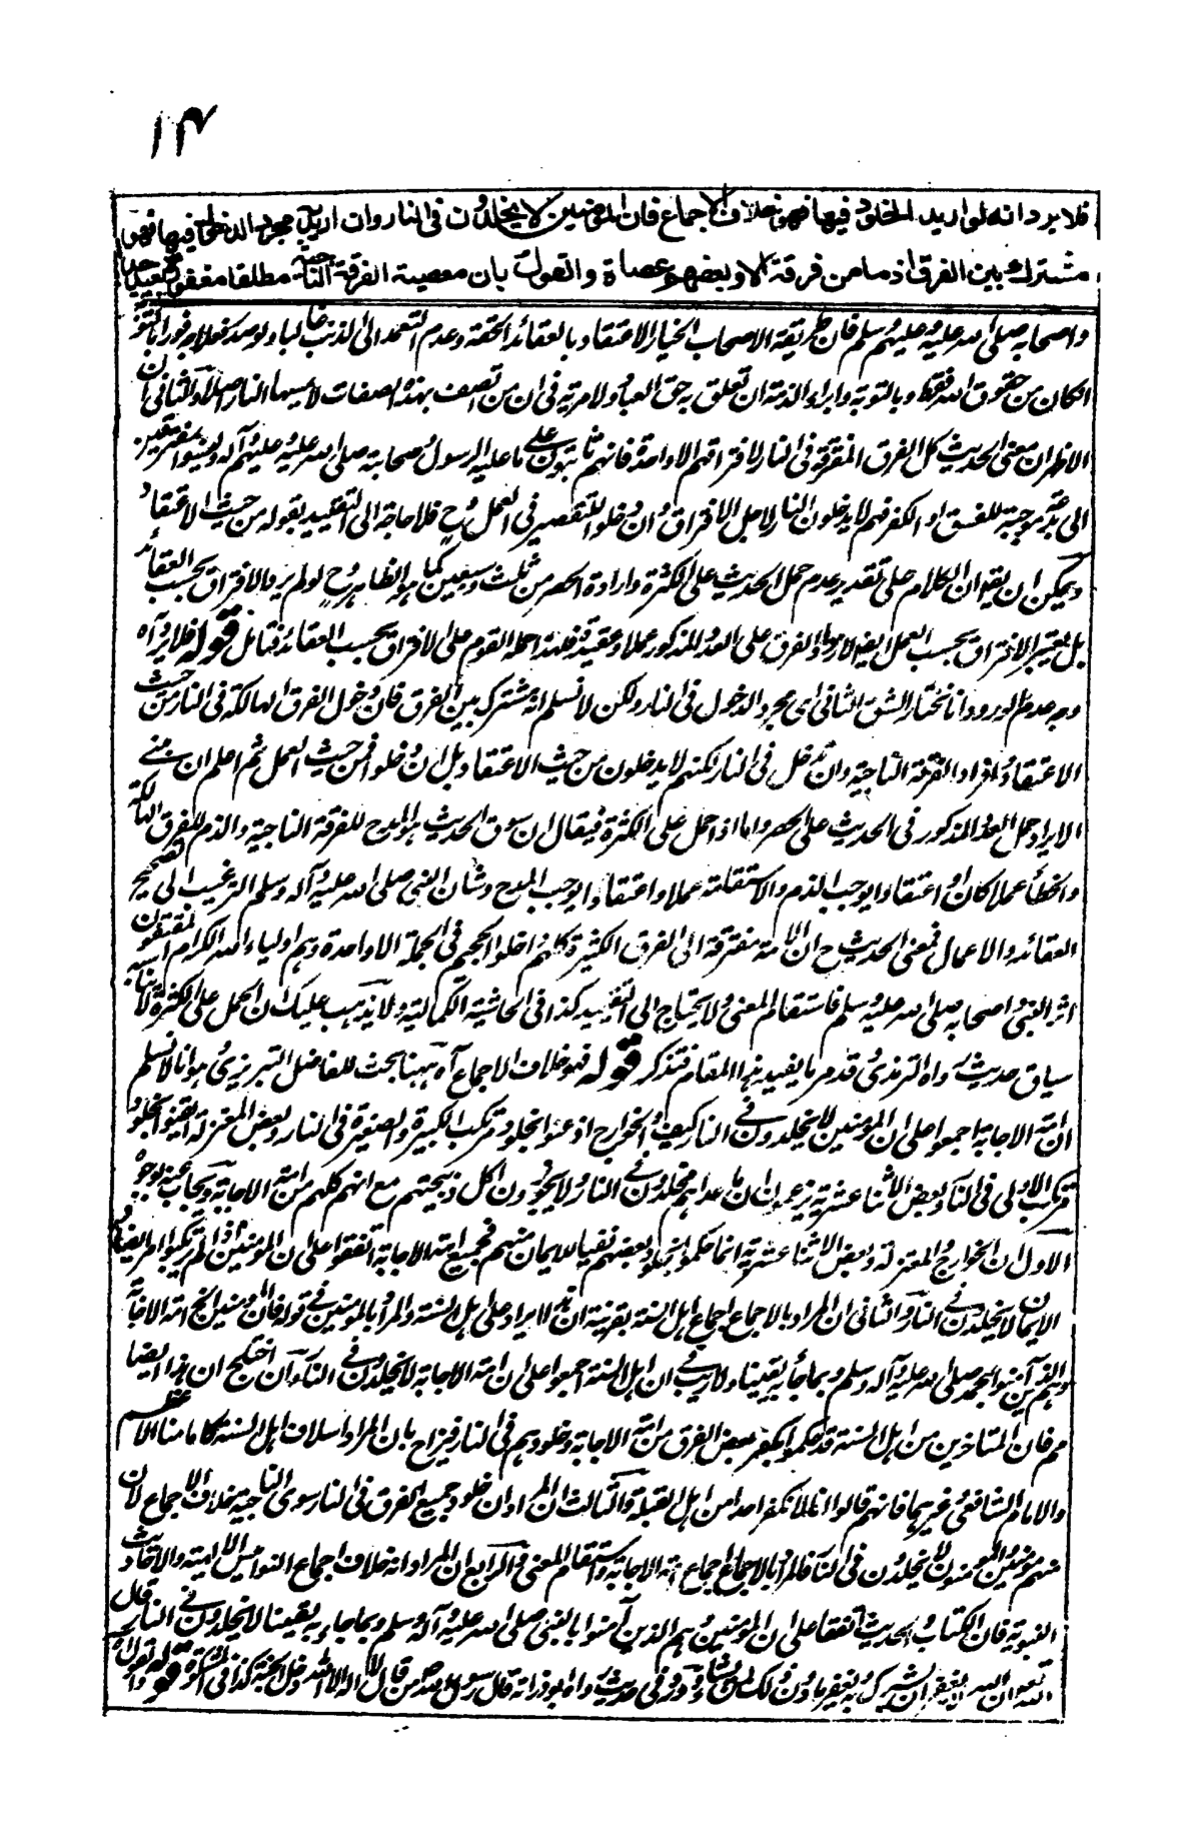 ١٣
فلا يرد انه لو اريد الخلود فيها فهو خلاف الاجماع فان المؤمنين لا يخلدون في النار وان اريد مجرد الدخول فيها فهو
مشترك بين الفرق اذ ما من فرقة الا وبعضهم عصاة والقول بان معصية الفرقة الناجية مطلقا مغفورة بعيد جدا
واصحابه صلى الله عليه وعليهم وسلم فان طريقة الاصحاب الخيار الاعتقاد بالعقائد الحقة وعدم التعمد الى الذنب غالبا ولو صدر فعلا
الكان من حقوق الله فقط وبالتوبة وابراء الذمة ان تعلق به حق العباد ولا مرية في ان من اتصف بهذه الصفات لا يمسها النار اصلا والثاني ان
الاظهر ان معنى الحديث كل الفرق المتفرقة في النار لافتراقهم الا واحدة فانهم ثابتون على ما عليه الرسول وصحابته صلى الله عليه وعليهم وآله وليسوا بمفترقين
الى بدعة موجبة للفسق او الكفر فهم لا يدخلون النار لاجل الافتراق وان دخلوا للتقصير في العمل وح فلا حاجة الى التقييد بقوله من حيث الاعتقاد
ويمكن ان يقال ان الكلام على تقدير عدم حمل الحديث على الكثرة وارادة الحصر من ثلث وسبعين كما هو الظاهر وح لو لم يرد الافتراق بحسب العقائد
بل يعتبر الافتراق بحسب العمل ايضا الفرق على العدد المذكور عملا وعقيدة فلهذا حمله القوم على الافتراق بحسب العقائد فتامل قوله فلا يرد آه
وجه عدم الورود انا نختار الشق الثاني اى مجرد الدخول في النار ولكن لا نسلم انه مشترك بين الفرق فان دخول الفرق الهالكة في النار من حيث
الاعتقاد وافراد الفرقة الناجية وان تدخل في النار لكنهم لا يدخلون من حيث الاعتقاد بل ان دخلوا فمن حيث العمل ثم اعلم ان مبنى
الايراد حمل العدد المذكور في الحديث على الحصر واما اذا حمل على الكثرة فيقال ان سوق الحديث هو المدح للفرقة الناجية والذم للفرق الهالكة
والخطأ عملا كان او اعتقادا يوجب الذم والاستقامة عملا واعتقادا يوجب المدح وشان النبي صلى الله عليه وآله وسلم الترغيب الى تصحيح
العقائد والاعمال فمعنى الحديث ح ان الامة مفترقة الى الفرق الكثيرة كلهم دخلوا الجحيم في الجملة الا واحدة وهم اولياء الله الكرام المقتفون
اثر النبي واصحابه صلى الله عليه وسلم فاستقام المعنى ولا يحتاج الى التقييد كذا في الحاشية الكمالية ولا يذهب عليك ان الحمل على الكثرة لا يناسبه
سياق حديث رواه الترمذي وقد مر ما يفيد في هذا المقام فتذكر قوله فهو خلاف الاجماع آه ههنا بحث للفاضل التبريزي وهو انا لا نسلم
ان امة الاجابة اجمعوا على ان المؤمنين لا يخلدون في النار كيف والخوارج اذعنوا بخلود مرتكب الكبيرة والصغيرة في النار وبعض المعتزلة ايقنوا بخلود
مرتكب الاولى في النار وبعض الاثنا عشرية يزعمون ان ما عداهم مخلدون في النار ولا يجوزون اكل ذبيحتهم مع انهم كلهم من امة الاجابة ويجاب عنه بوجوه
الاول ان الخوارج والمعتزلة وبعض الاثنا عشرية انما حكموا بخلود بعضهم نفيا للايمان منهم فجميع امة الاجابة اتفقوا على ان المؤمنين اذا لم يرتكبوا امرا يضاد
الايمان لا يخلدون في النار والثاني ان المراد بالاجماع اجماع اهل السنة بقرينة ان هذا الايراد على اهل السنة والمراد بالمؤمنين في قوله فان المؤمنين الخ امة الاجابة
وهم الذين آمنوا بمحمد صلى الله عليه وآله وسلم وبما جاء به يقينا ولا ريب في ان اهل السنة اجمعوا على ان امة الاجابة لا يخلدون في النار وان اختلج ان هذا ايضا
مم فان المتاخرين من اهل السنة قد حكموا بكفر بعض الفرق من امة الاجابة وخلودهم في النار فيزاح بان المراد اسلاف اهل السنة كامامنا الاعظم
والامام الشافعي وغيرهما فانهم قالوا انا لا نكفر احدا من اهل القبلة والثالث ان المراد ان خلود جميع الفرق في النار سوى الناجية خلاف الاجماع لان
منهم مؤمنون والمؤمنون لا يخلدون في النار فالمراد بالاجماع اجماع امة الاجابة واستقام المعنى والرابع ان المراد انه خلاف اجماع النواميس الالهية والاحاديث
النبوية فان الكتاب والحديث اتفقا على ان المؤمنين وهم الذين آمنوا بالنبي صلى الله عليه وآله وسلم وبما جاء به يقينا لا يخلدون في النار قال
الله تعالى ان الله لا يغفر ان يشرك به ويغفر ما دون ذلك لمن يشاء وورد في حديث رواه ابو ذر انه قال رسول الله صلعم من قال لا اله الا الله دخل الجنة كذا في المشكوة قوله والقول